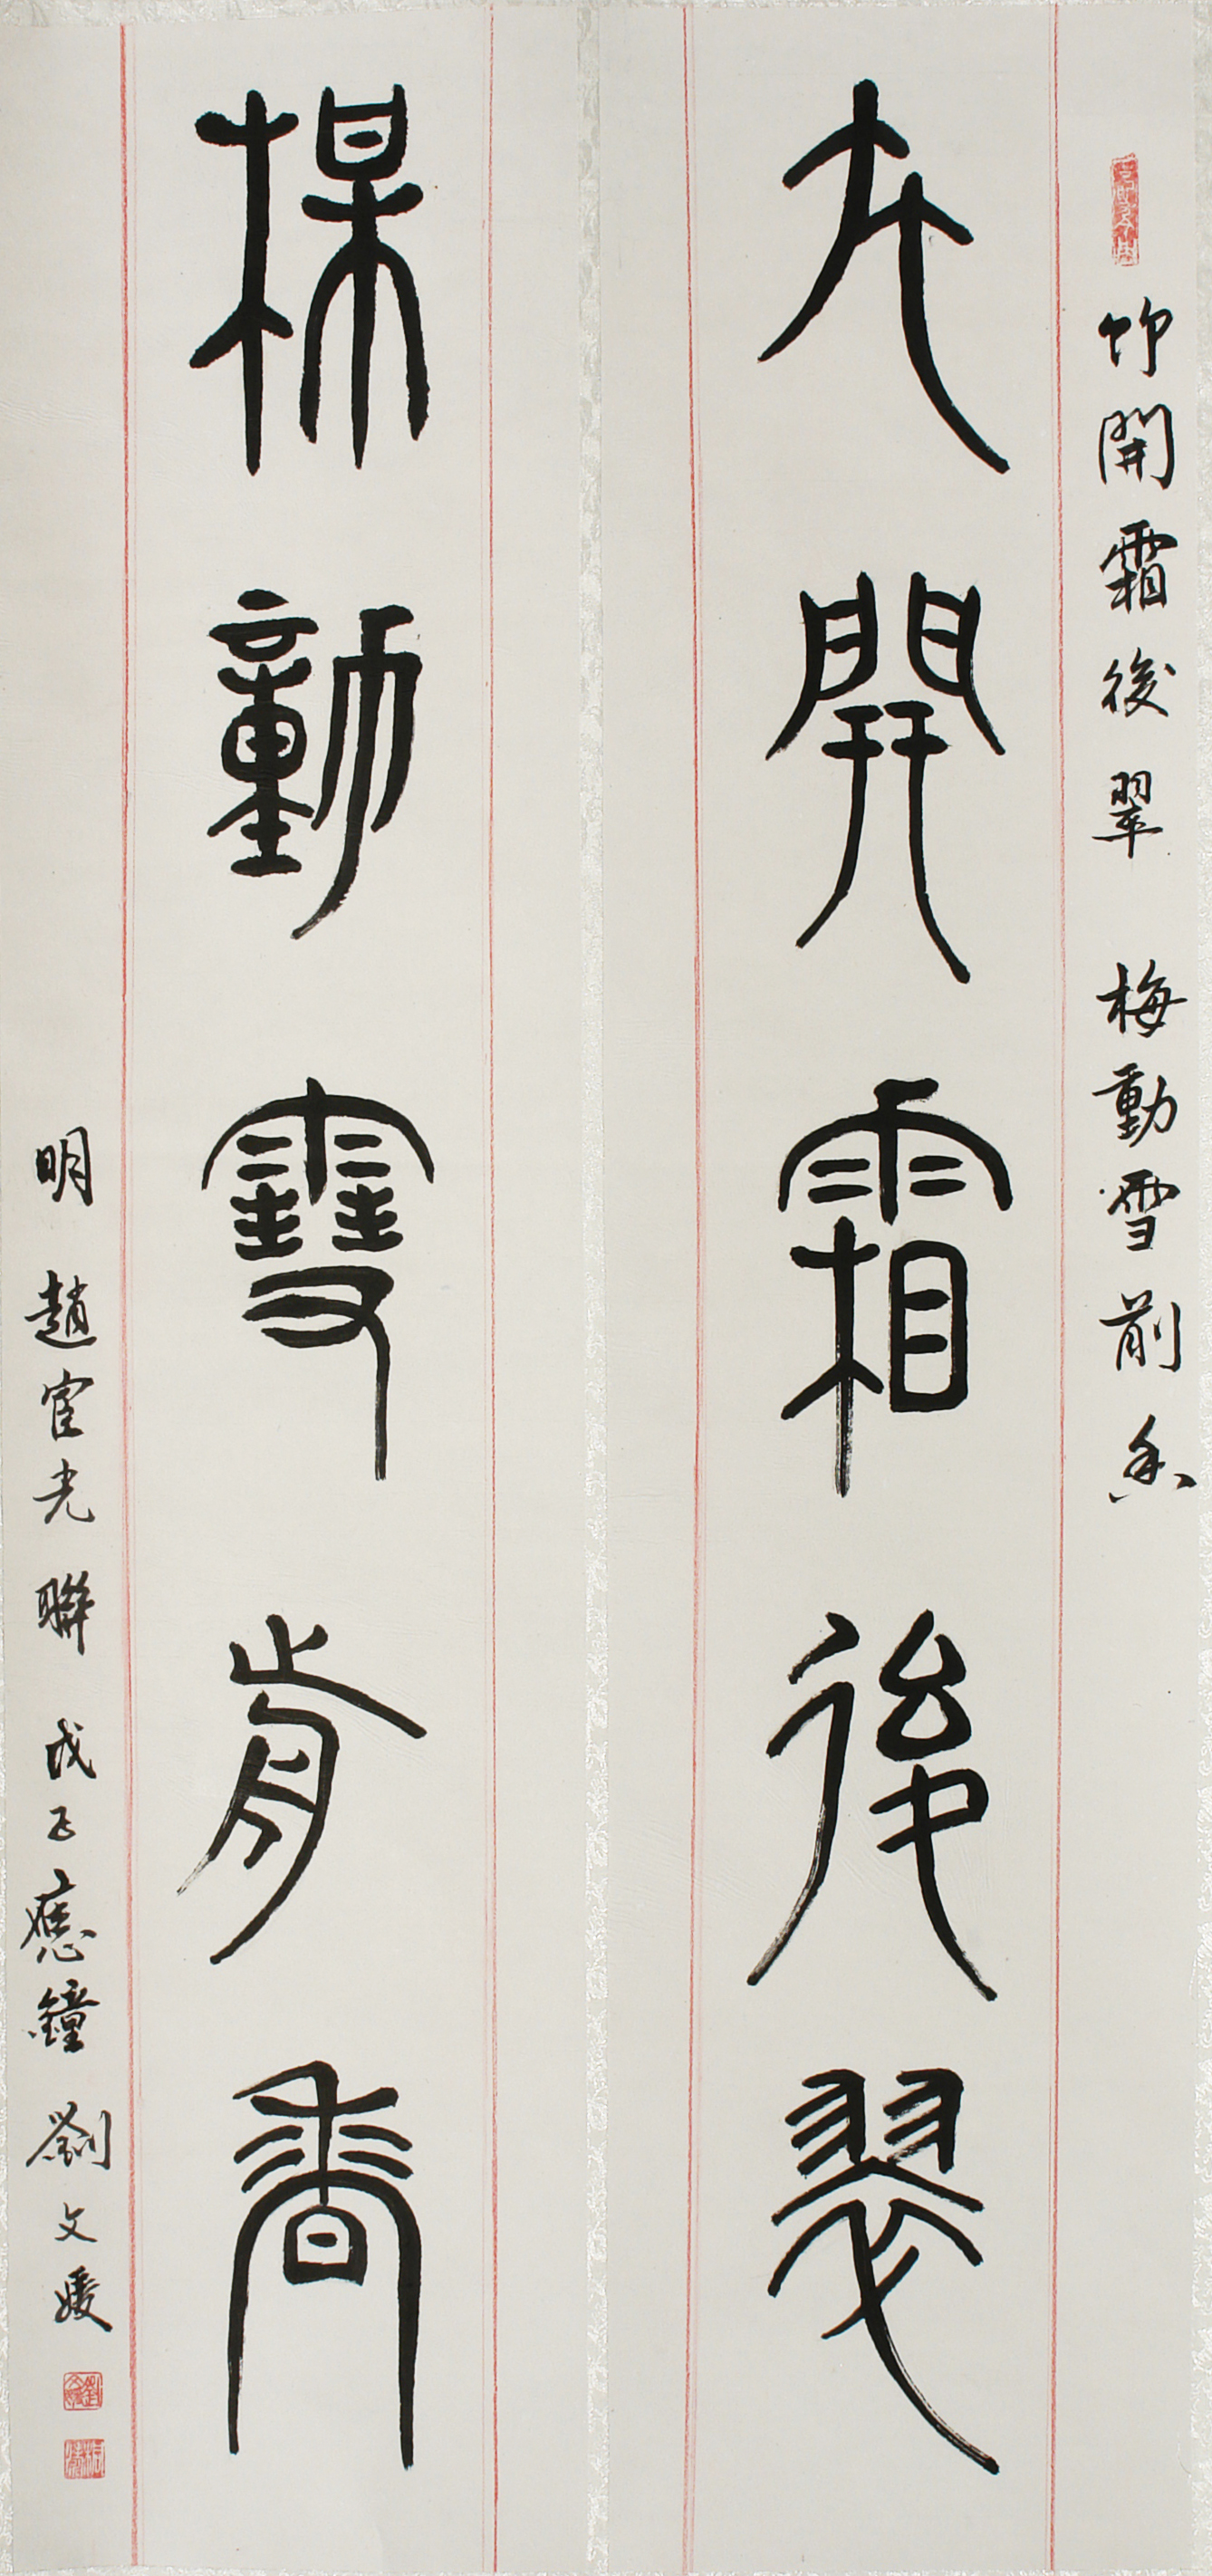 竹開霜後翠 梅動雪前香
竹開霜後翠
梅動雪前香
明 趙宧光 聯 戊子應鐘 劉文媛